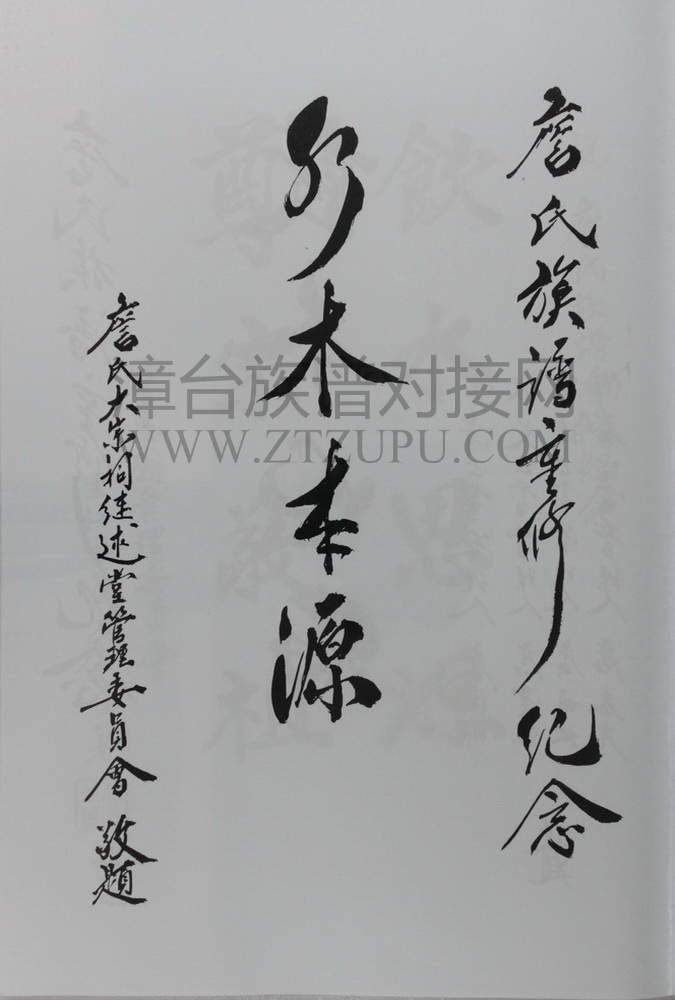 詹氏族譜重修紀念
水木本源
詹氏大宗祠繼述堂管理委員會 敬題
漳台族谱对接网
WWW.ZTZUPU.COM